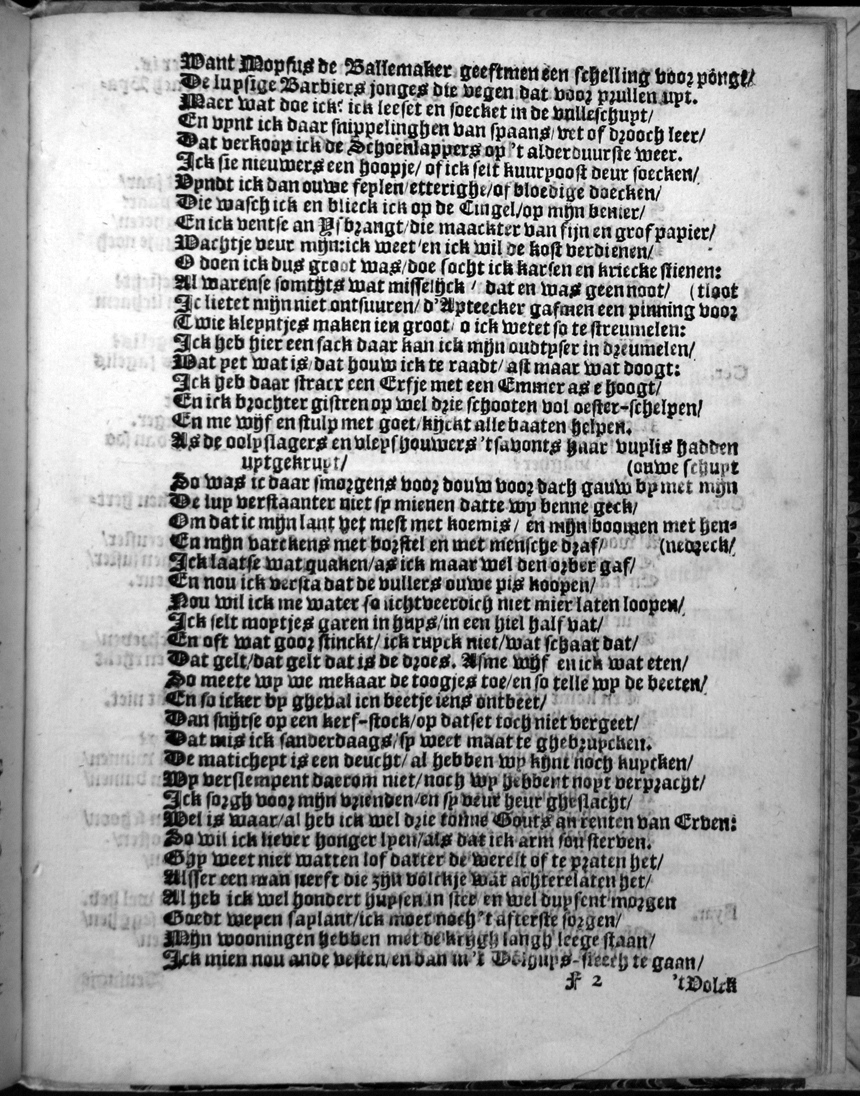 Want Mopsus de Ballemaker geeftmen een schelling voor pongt/
De lupsige Barbiers jonges die vegen dat voor prullen upt.
Maer wat doe ick? ick leeset en soecket in de vulleschupt/
En vynt ick daar snippelinghen van spaans/ vet of drooch leer/
Dat verkoop ick de Schoenlappers op 't alderduurste weer.
Ick sie nieuwers een hoopje/ of ick selt kuurpoost deur soecken/
Vyndt ick dan ouwe feylen/ etterighe/ of bloedige doecken/
Die wasch ick en blieck ick op de Cingel/ op mijn benier/
En ick ventse an Ysbrangt/ die maackter van fijn en grof papier/
Wachtje veur mijn: ick weet/ en ick wil de kost verdienen/
O doen ick dus groot was/ doe socht ick karsen en kriecke stienen:
Al warense somtyts wat misselijck/ dat en was geen noot/ (tloot
Ic lietet mijn niet ontsuuren/ d'Apteecker gafmen een pinning voor
Twie kleyntjes maken ien groot/ o ick wetet so te streumelen:
Ick heb hier een sack daar kan ick mijn oudtyser in dreumelen/
Wat yet wat is/ dat houw ick te raadt/ ast maar wat doogt:
Ick heb daar stracx een Erfje met een Emmer as e hoogt/
En ick brochter gistren op wel drie schooten vol oester-schelpen/
En me wijf en stulp met goet/ kijckt alle baaten helpen.
As de oolyslagers en vleyshouwers 'tsavonts haar vuylis hadden
uytgekruyt/ (ouwe schuyt
So was ic daar smorgens voor douw voor dach gauw by met mijn
De luy verstaanter niet sy mienen datte wy benne geck/
Om dat ic mijn lant yet mest met koemis/ en mijn boomen met hen-
En mijn varckens met borstel en met mensche draf/ (nedreck/
Ick laatse wat quaken/ as ick maar wel den orber gaf/
En nou ick versta dat de vullers ouwe pis koopen/
Nou wil ick me water so lichtveerdich niet mier laten loopen/
Ick selt moptjes garen in huys/ in een hiel half vat/
En oft wat goor stinckt/ ick ruyck niet/ wat schaat dat/
Dat gelt/ dat gelt dat is de droes. Asme wijf en ick wat eten/
So meete wy we mekaar de toogjes toe/ en so telle wy de beeten/
En so icker by gheval icn beetje iens ontbeet/
Dan snijtse op een kerf-stock/ op datset toch niet vergeet/
Dat mis ick sanderdaags/ sy weet maat te ghebruycken.
De matichept is een deucht/ al hebben wy kijnt noch kuycken/
Wy verslempent daerom niet/ noch wy hebbent noyt verpracht/
Ick sorgh voor mijn vrienden/ en sy veur heur gheslacht/
Wel is waar/ al heb ick wel drie tonne Gouts an renten van Erven:
So wil ick liever honger lyen/ als dat ick arm sou sterven.
Ghy weet niet watten lof datter de werelt of te praten het/
Alsser een man sterft die zijn volckje wat achterelaten het/
Al heb ick wel hondert huysen in stee en wel duysent morgen
Goedt weyen saylant/ ick moet noch 't afterste sorgen/
Mijn wooningen hebben met de krijgh langh leege staan/
Ick mien nou ande vesten/ en dan in 't Volguys-steech te gaan/
F 2 'tVolck